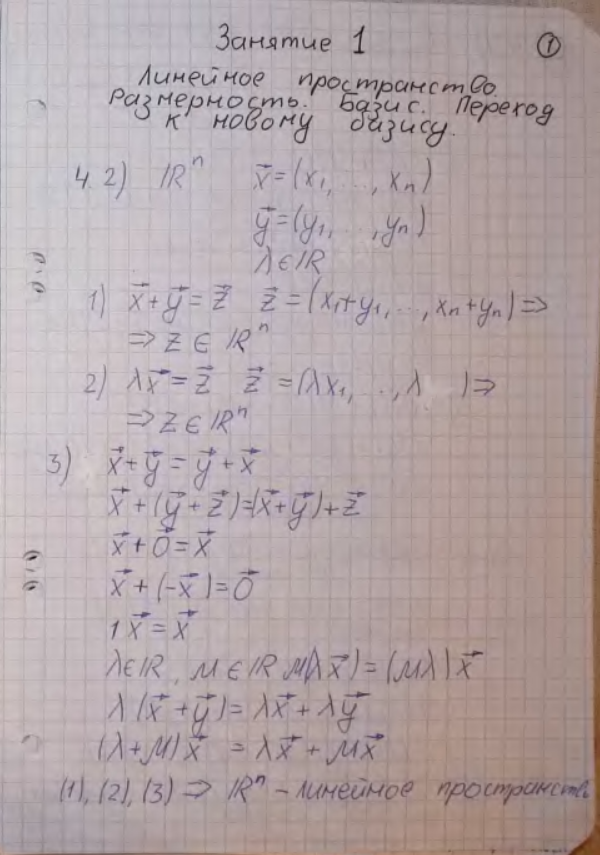 Занятие 1 ①
Линейное пространство.
Размерность. Базис. Переход
к новому базису.
4. 2) ℝⁿ x⃗=(x₁, ..., xₙ)
y⃗=(y₁, ..., yₙ)
λ∈ℝ
1) x⃗+y⃗=z⃗ z⃗=(x₁+y₁, .., xₙ+yₙ)⇒
⇒z∈ℝⁿ
2) λx⃗=z⃗ z⃗=(λx₁, .., λ )⇒
⇒z∈ℝⁿ
3) x⃗+y⃗=y⃗+x⃗
x⃗+(y⃗+z⃗)=(x⃗+y⃗)+z⃗
x⃗+0⃗=x⃗
x⃗+(-x⃗)=0⃗
1x⃗=x⃗
λ∈ℝ, μ∈ℝ μ(λx⃗)=(μλ)x⃗
λ(x⃗+y⃗)=λx⃗+λy⃗
(λ+μ)x⃗ =λx⃗+μx⃗
(1), (2), (3) ⇒ ℝⁿ - линейное пространств